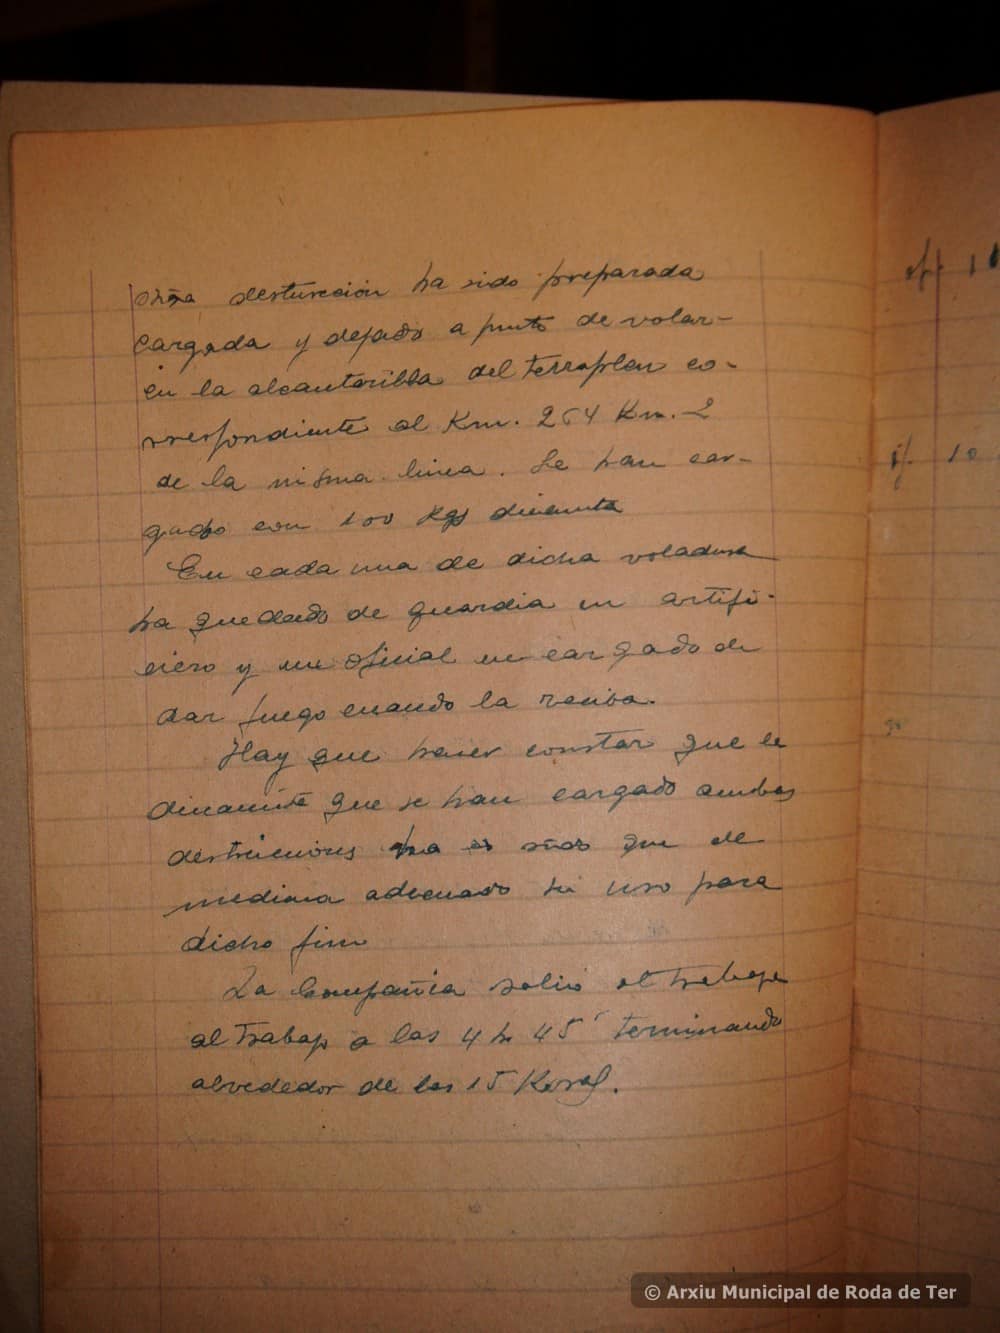 Otra destrucción ha sido preparada
cargada y dejado a punto de volar-
en la alcantarilla del terraplen co-
rrespondiente al Km. 264 Km. 2
de la misma linea. Se han car-
gado con 100 Kgs dinamita
En cada una de dicha voladura
ha quedado de guardia un artifi-
ciero y un oficial encargado de
dar fuego cuando la reciba.
Hay que hacer constar que la
dinamita que se han cargado ambas
destrucciones que de
mediana adecuado su uso para
dicho fin
La Compañia salió al trabajo
al trabajo a las 4 h 45' terminando
alrededor de las 15
of. 1
if. 10
© Arxiu Municipal de Roda de Ter